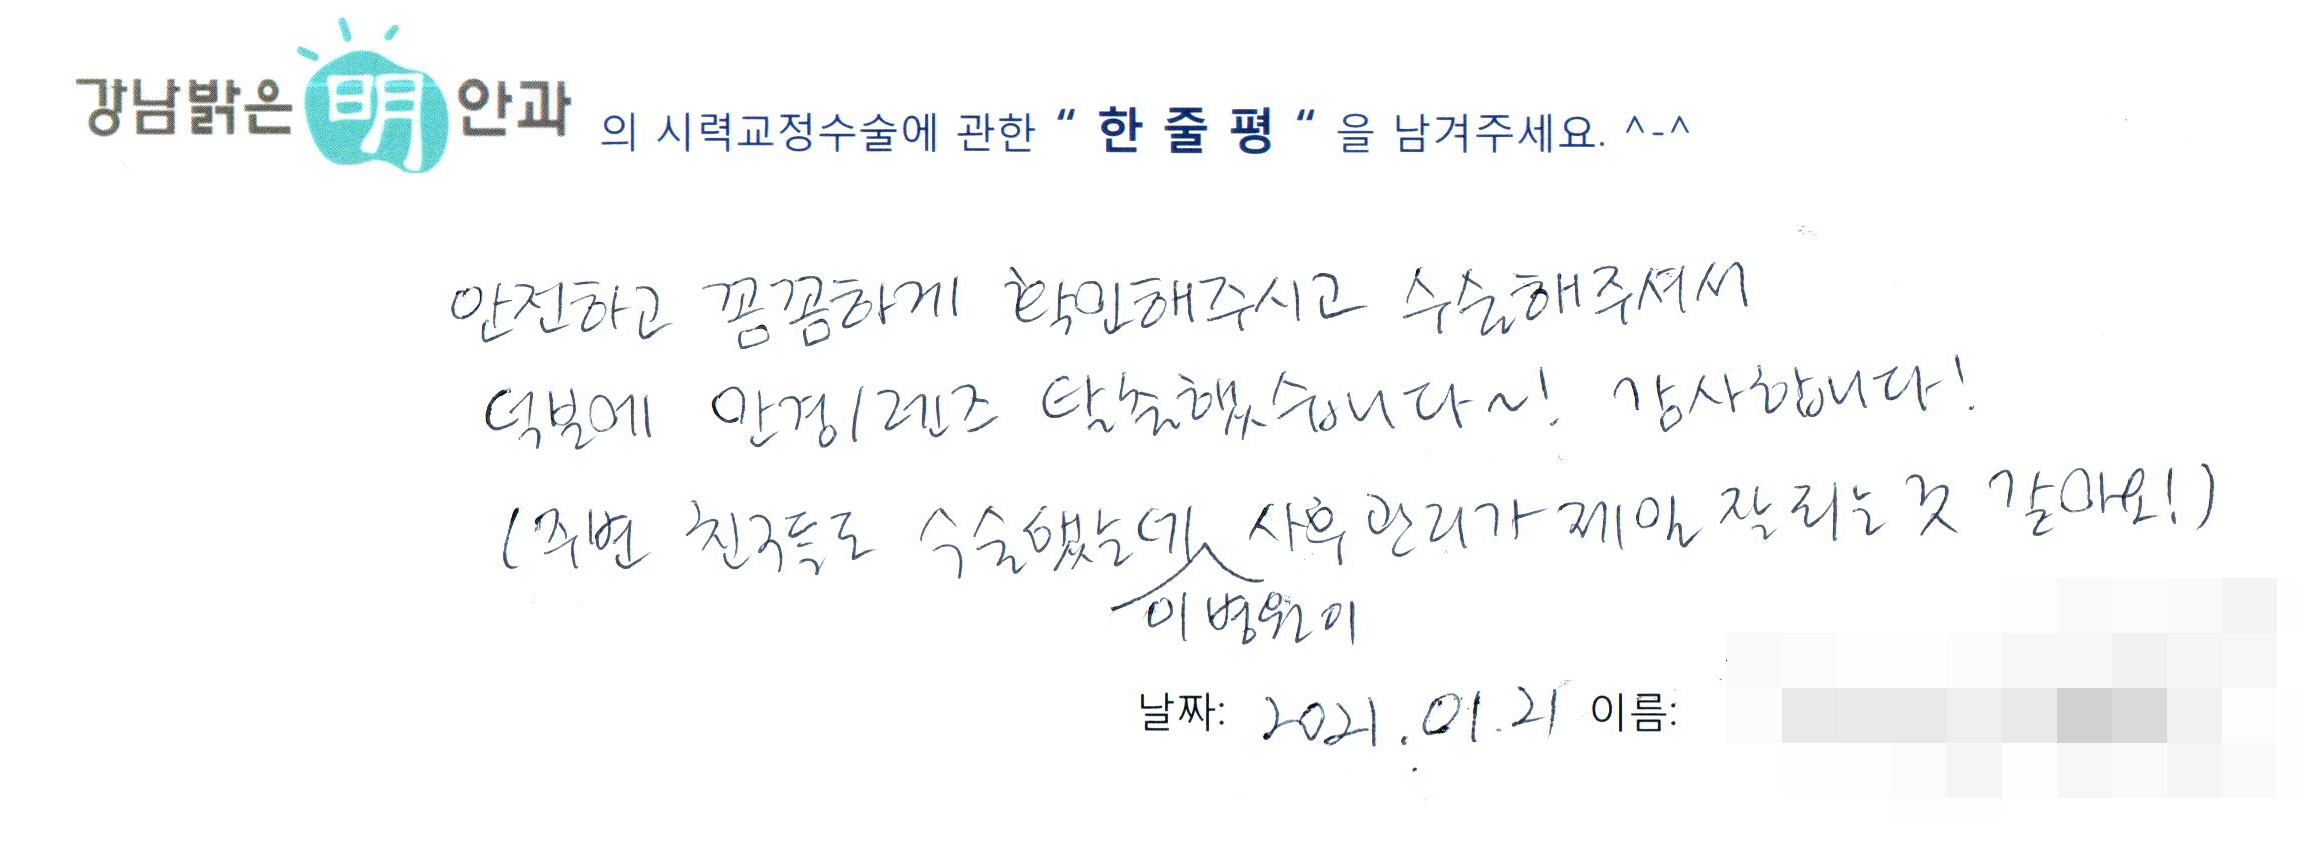 강남밝은 明 안과 의 시력교정수술에 관한 “ 한 줄 평 “ 을 남겨주세요. ^-^
안전하고 꼼꼼하게 확인해주시고 수술해주셔서
덕분에 안경/렌즈 탈출했습니다~! 감사합니다!
(주변 친구들도 수술했는데 사후관리가 제일 잘 되는 것 같아요!)
이 병원이
날짜: 2021.01.21 이름: